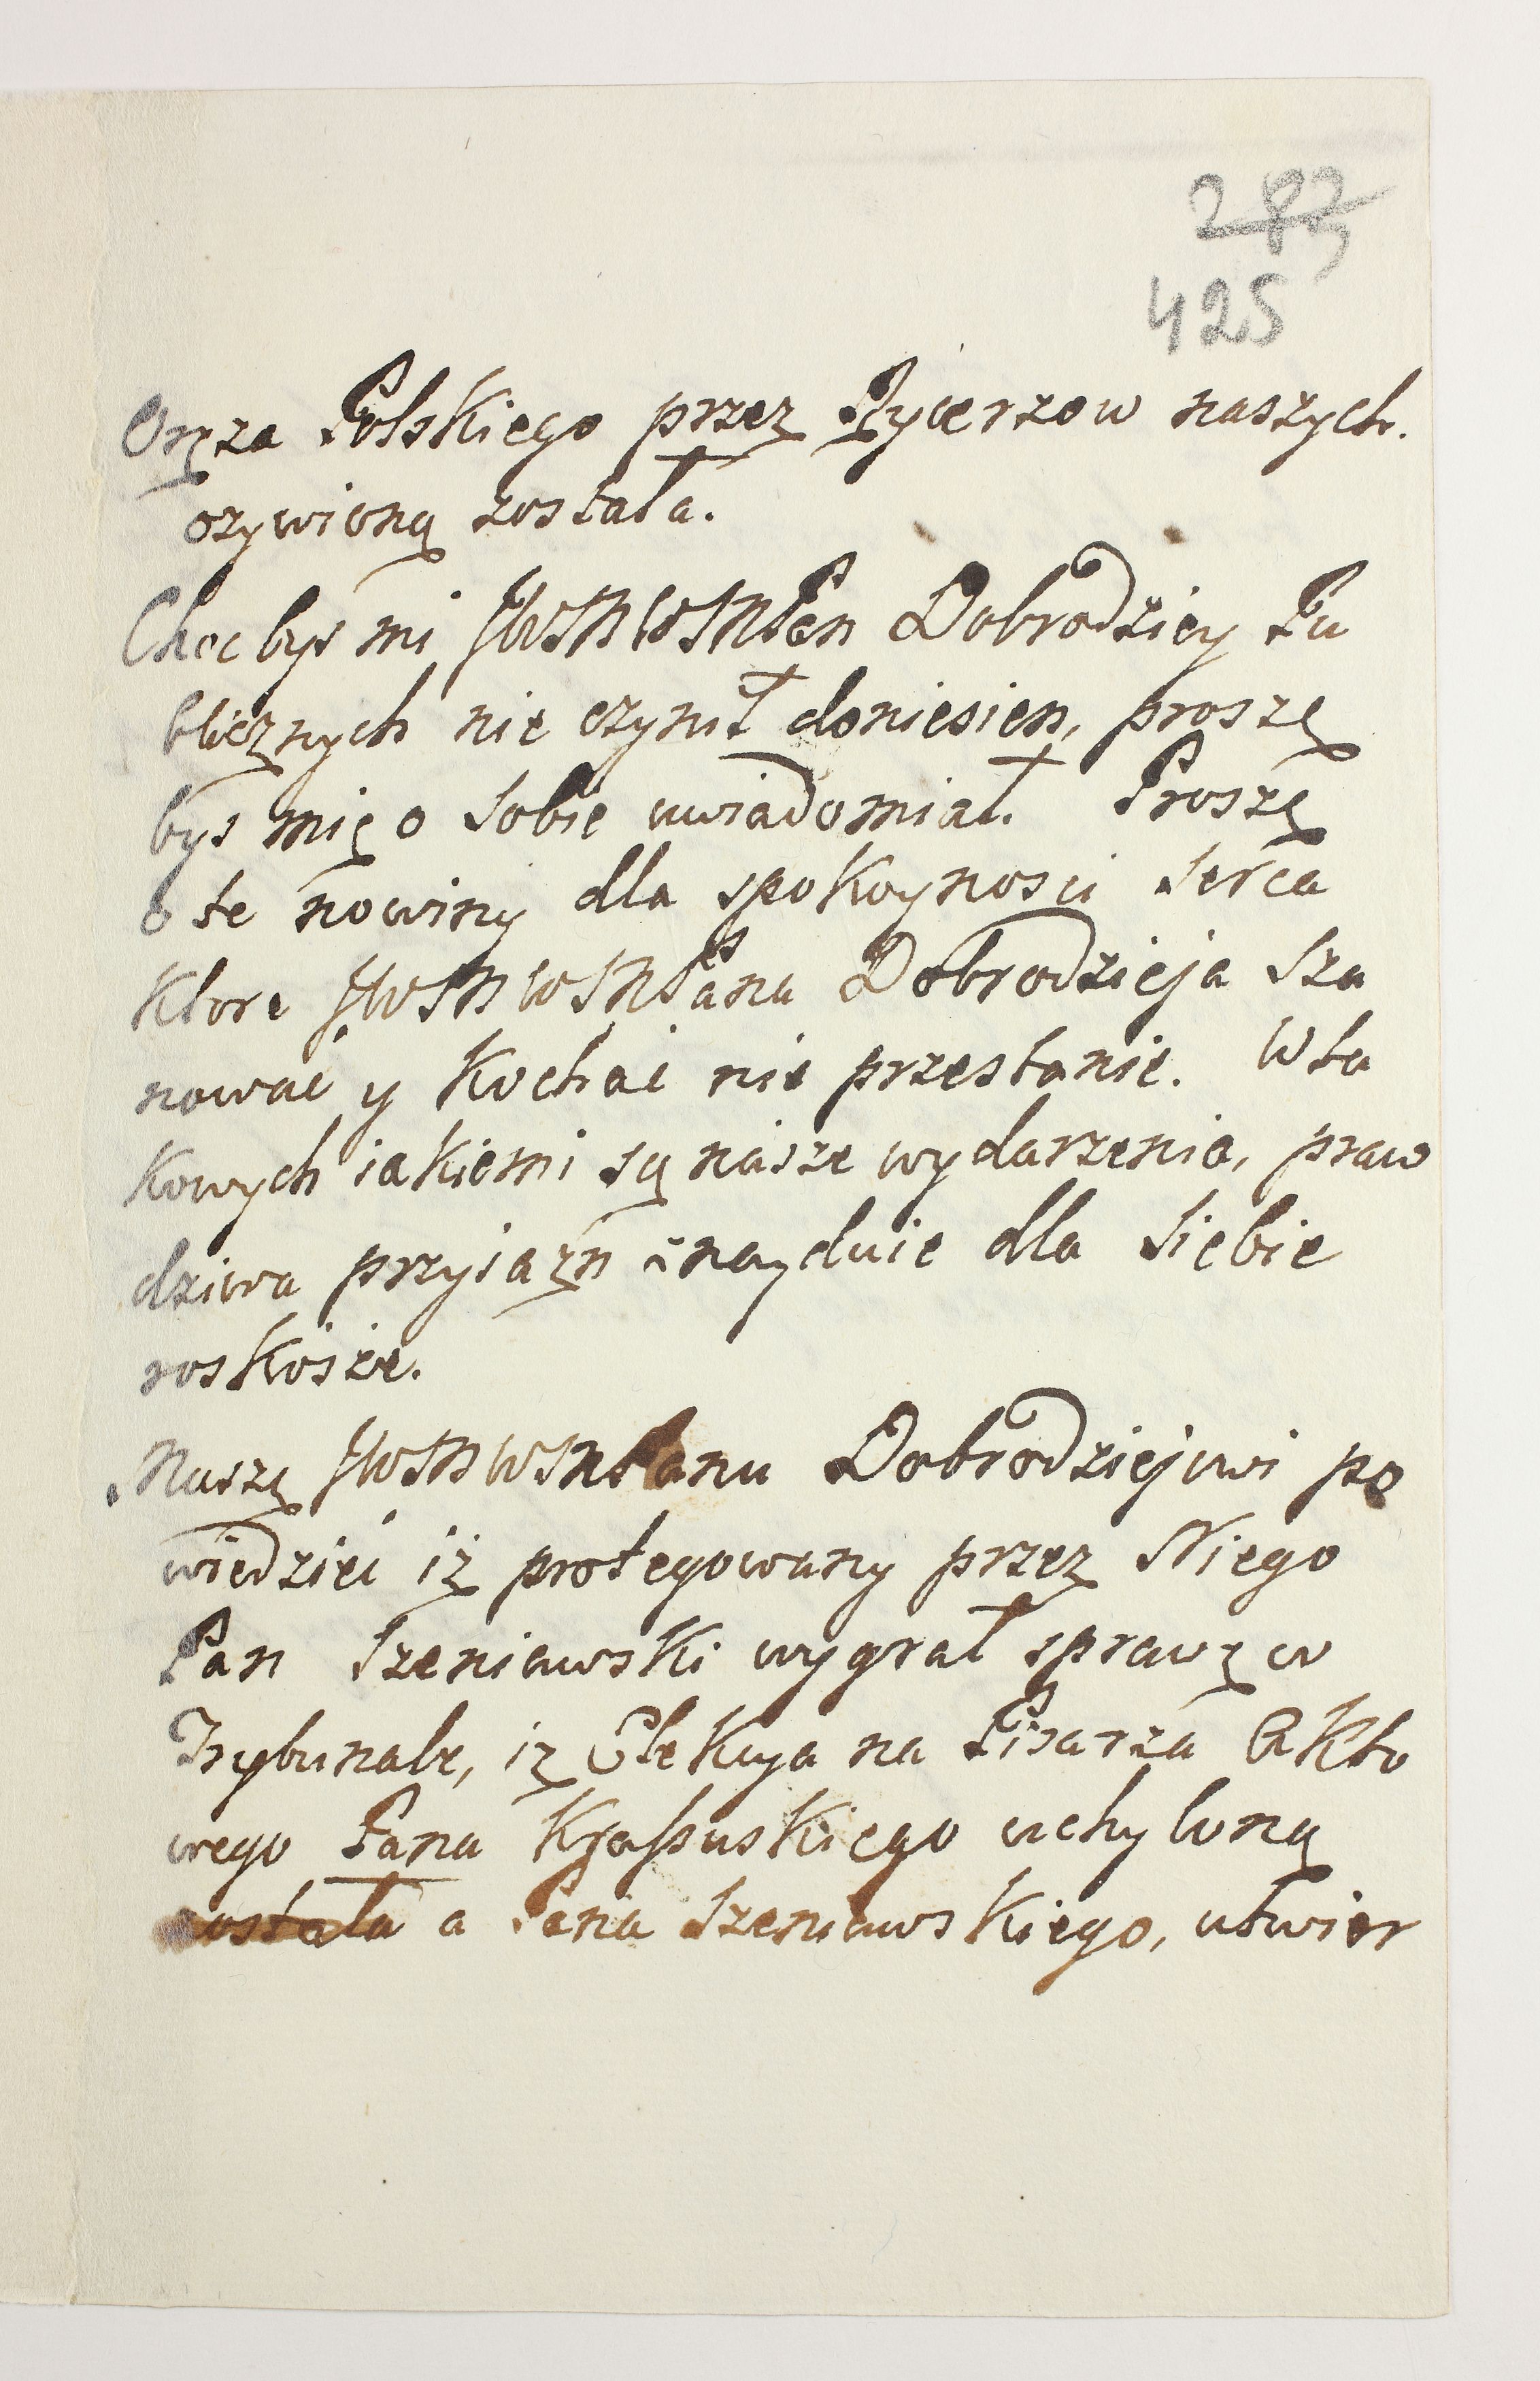 283
425
Oręza Polskiego przez Rycerzow naszych.
ozywioną została.
Choc bys mi JWWMPan Dobrodziey Pu
blicznych nie czynił doniesien, proszę
bys mię o Sobie uwiadomiał. Proszę
o te nowiny dla spokoynosci Serca
Ktore Dobrodzieja Sza
nowac y Kochac nie przestanie. W ta
Kowych iakiemi są nasze wydarzenia, praw
dziwa przyiazn znayduie dla Siebie
roskosze.
Muszę Dobrodziejowi po
wiedziec iż protegowany przez Niego
Pan Szeniawski wygrał sprawę w
Trybunale, iz Elekcya na Pisarza Akto
wego Pana uchyloną
została a Pana Szeniawskiego, utwier